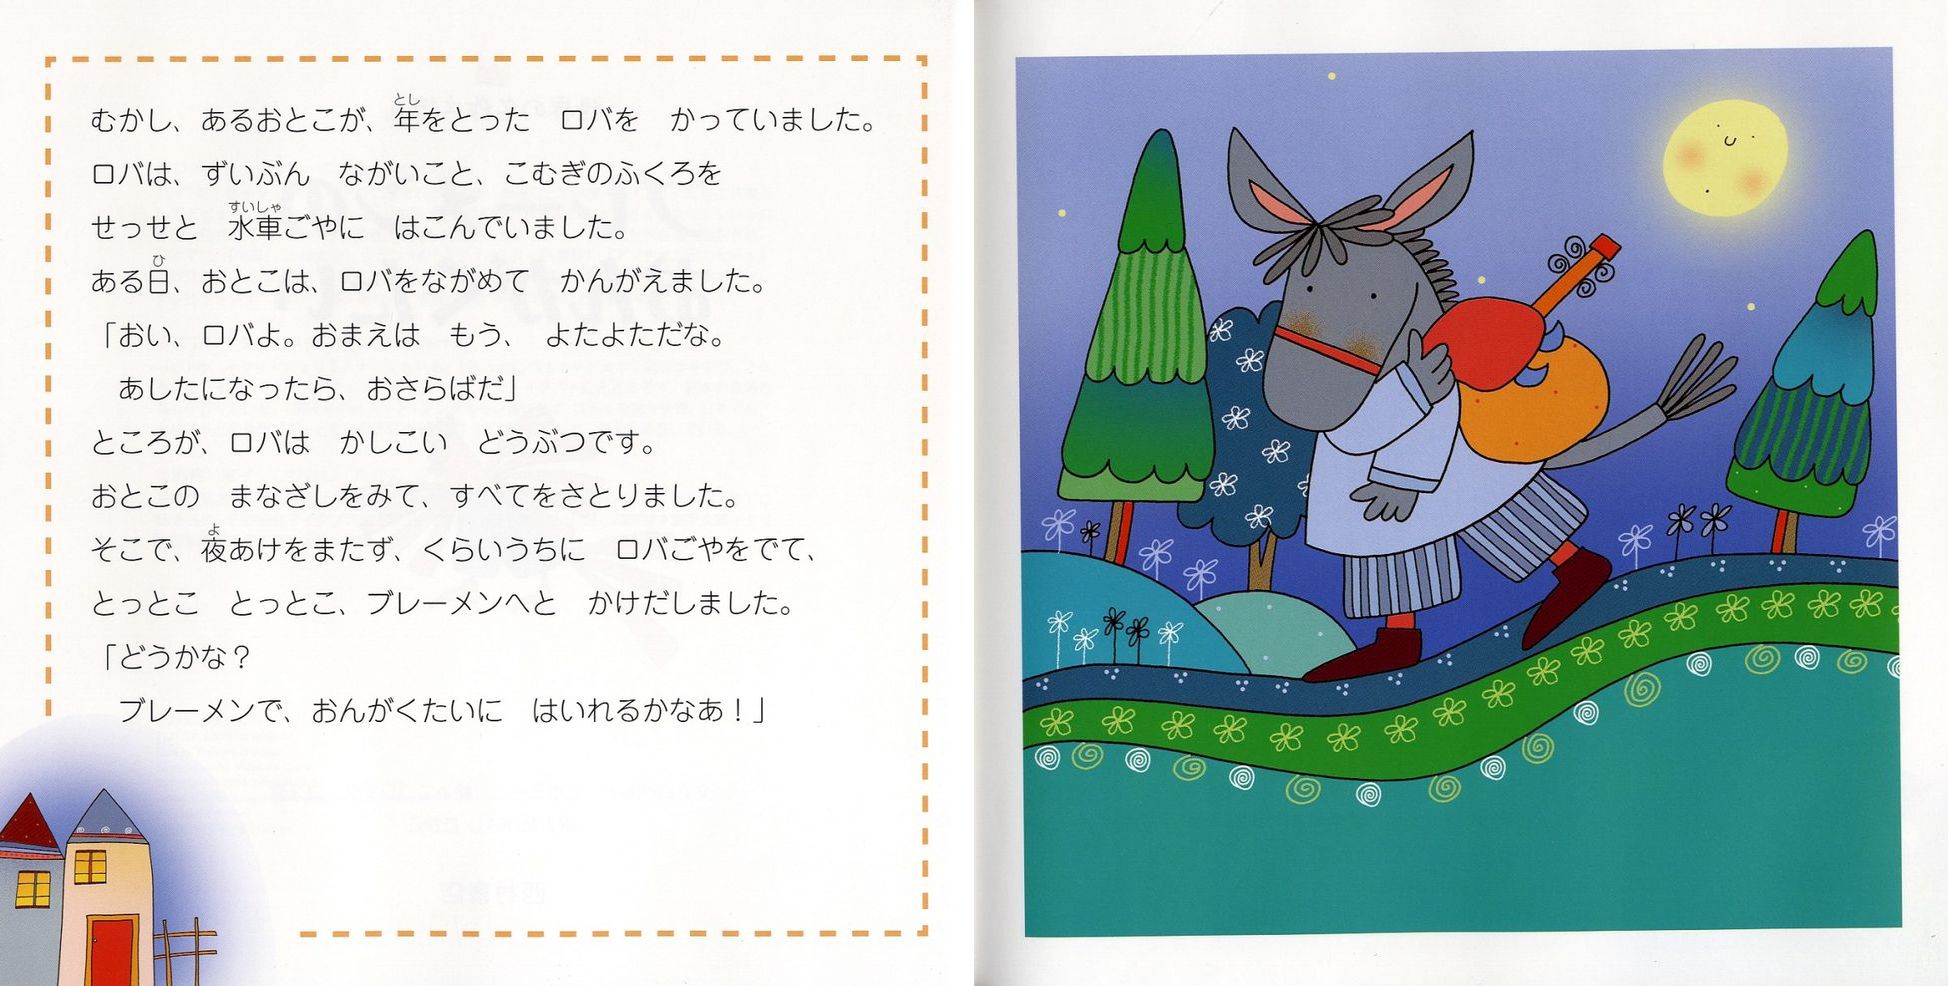 むかし、あるおとこが、年をとった　ロバを　かっていました。
ロバは、ずいぶん　ながいこと、こむぎのふくろを
せっせと　水車ごやに　はこんでいました。
ある日、おとこは、ロバをながめて　かんがえました。
「おい、ロバよ。おまえは　もう、　よたよただな。
　あしたになったら、おさらばだ」
ところが、ロバは　かしこい　どうぶつです。
おとこの　まなざしをみて、すべてをさとりました。
そこで、夜あけをまたず、くらいうちに　ロバごやをでて、
とっとこ　とっとこ、ブレーメンへと　かけだしました。
「どうかな？
　ブレーメンで、おんがくたいに　はいれるかなあ！」